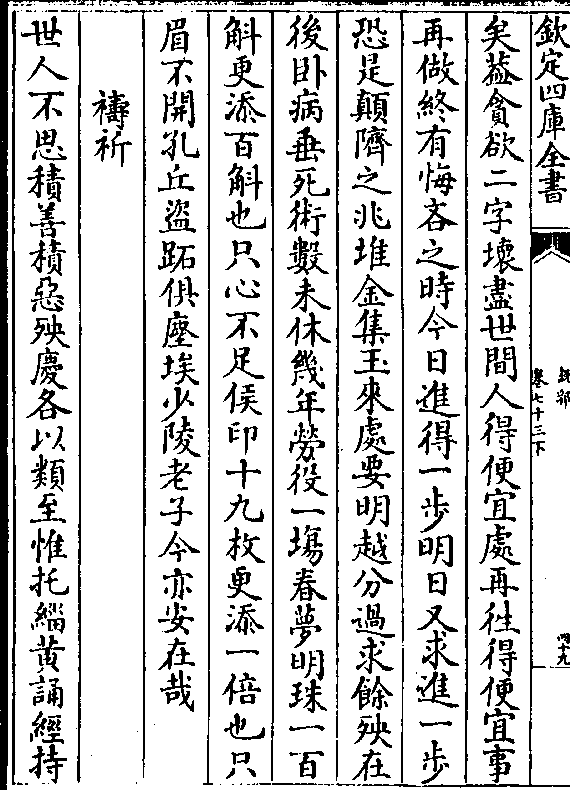 欽定四庫全書
說郛
卷七十三下
四十九
矣葢貪欲二字壞盡世間人得便宜處再徃得便宜事
再做終有悔吝之時今日進得一步明日又求進一步
恐是顛隮之兆堆金集玉來處要明越分過求餘殃在
後卧病垂死術數未休幾年勞役一塲春夢明珠一百
斛更添百斛也只心不足侯印十九枚更添一倍也只
眉不開孔丘盜跖俱塵埃少陵老子今亦安在哉
禱祈
世人不思積善積惡殃慶各以類至惟托緇黄誦經持